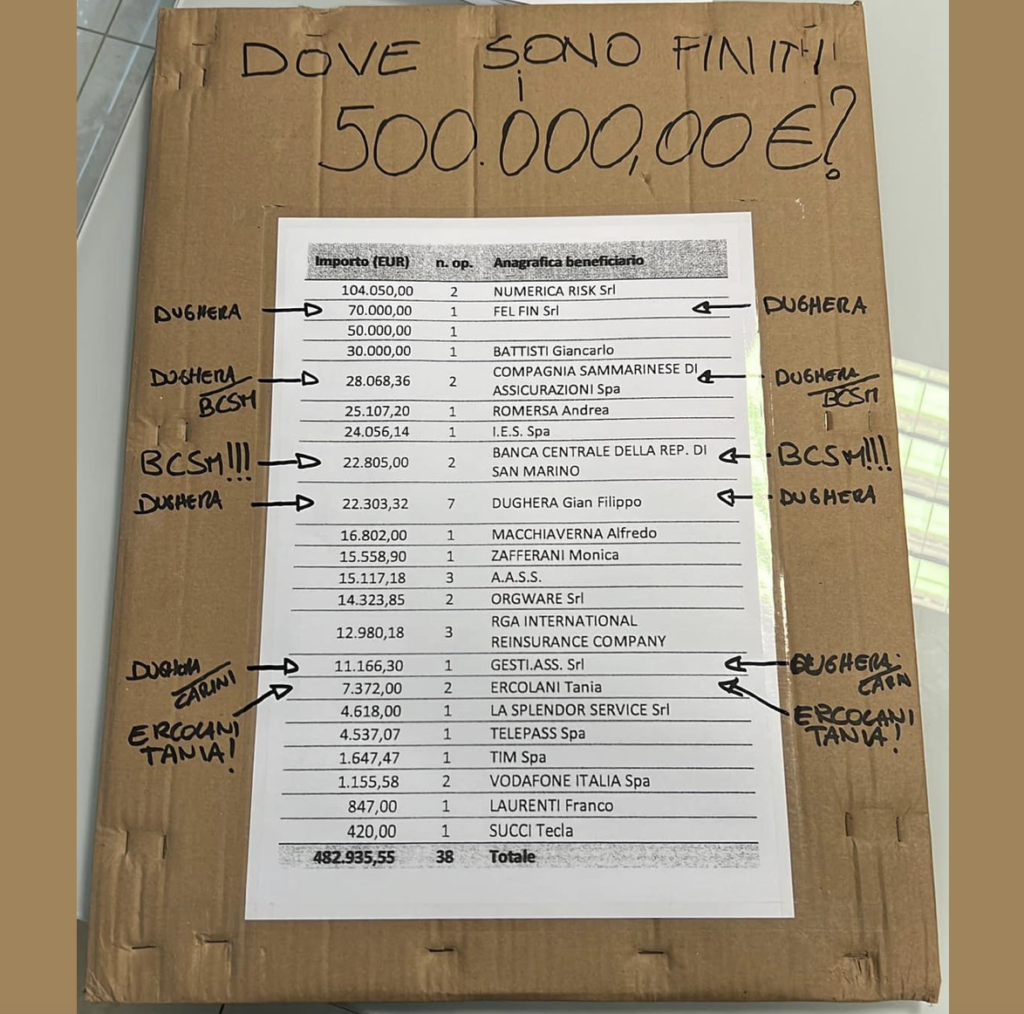 DOVE SONO FINITI
i
500.000,00 €?
Importo (EUR) n. op. Anagrafica beneficiario
104.050,00 2 NUMERICA RISK Srl
DUGHERA 70.000,00 1 FEL FIN Srl DUGHERA
50.000,00 1
30.000,00 1 BATTISTI Giancarlo
DUGHERA/BCSM 28.068,36 2 COMPAGNIA SAMMARINESE DI DUGHERA/BCSM
ASSICURAZIONI Spa
25.107,20 1 ROMERSA Andrea
24.056,14 1 I.E.S. Spa
BCSM!!! 22.805,00 2 BANCA CENTRALE DELLA REP. DI BCSM!!!
SAN MARINO
DUGHERA 22.303,32 7 DUGHERA Gian Filippo DUGHERA
16.802,00 1 MACCHIAVERNA Alfredo
15.558,90 1 ZAFFERANI Monica
15.117,18 3 A.A.S.S.
14.323,85 2 ORGWARE Srl
12.980,18 3 RGA INTERNATIONAL
REINSURANCE COMPANY
CARINI 11.166,30 1 GESTI.ASS. Srl DUGHERA
ERCOLANI 7.372,00 2 ERCOLANI Tania ERCOLANI
TANIA! TANIA!
4.618,00 1 LA SPLENDOR SERVICE Srl
4.537,07 1 TELEPASS Spa
1.647,47 1 TIM Spa
1.155,58 2 VODAFONE ITALIA Spa
847,00 1 LAURENTI Franco
420,00 1 SUCCI Tecla
482.935,55 38 Totale